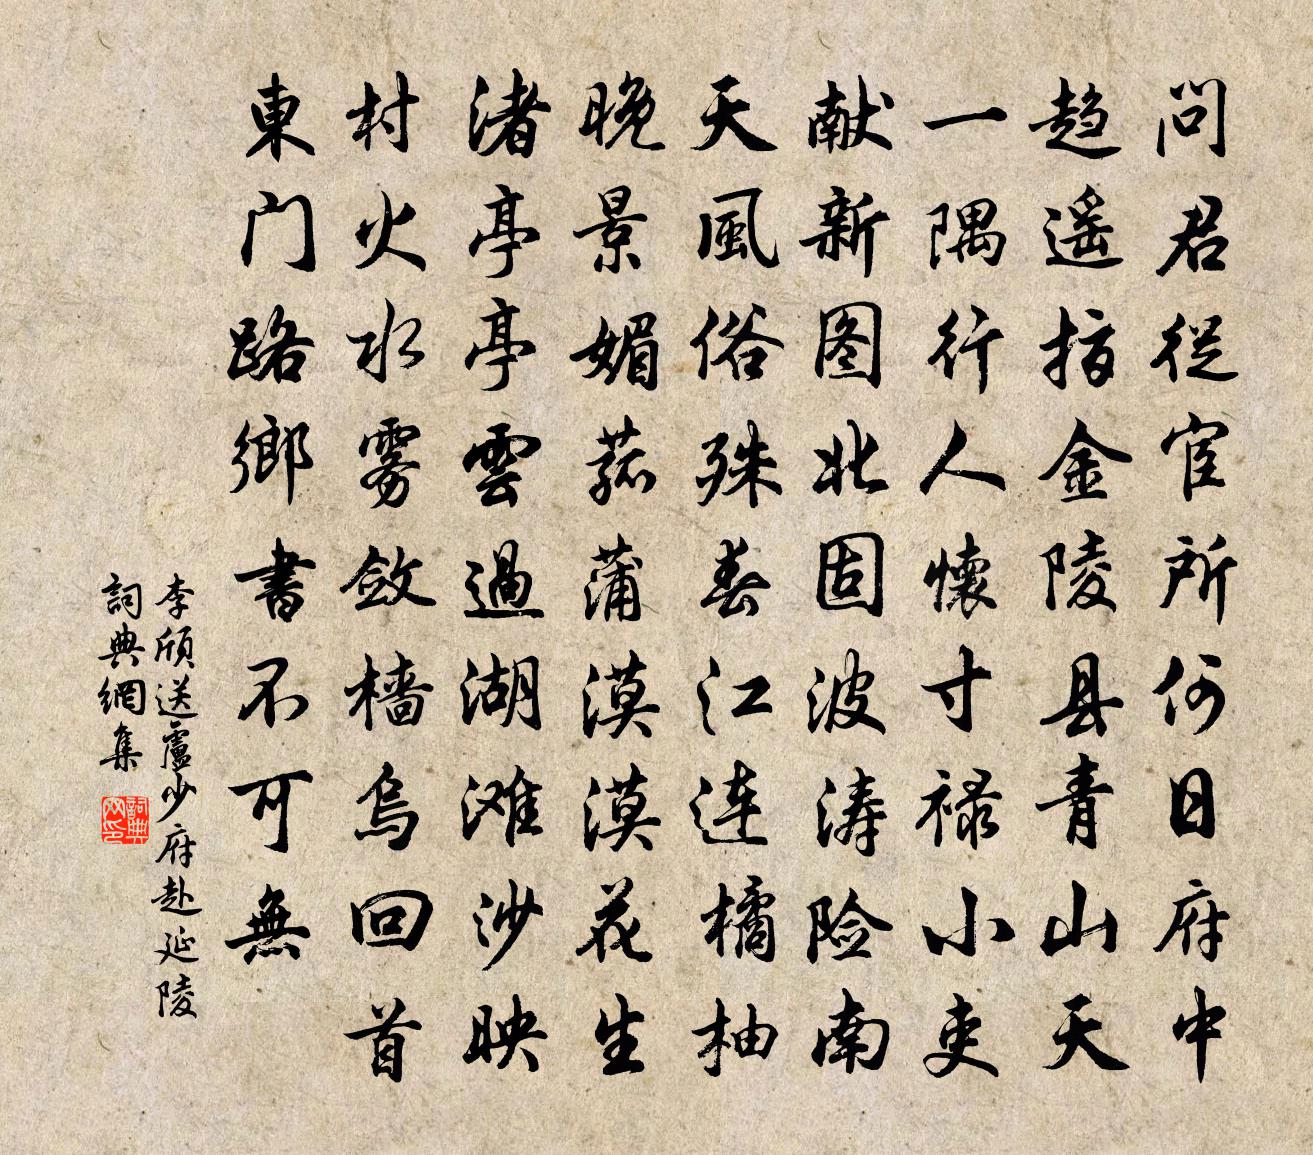 问君從宦所何日府中
趋遥指金陵县青山天
一隅行人懷寸禄小吏
献新图北固波涛险南
天風俗殊春江连橘柚
晚景媚菰蒲漠漠花生
渚亭亭雲過湖滩沙映
村火水雾敛樯烏回首
東门路鄉書不可無
李頎送盧少府赴延陵
詞典網集
詞典网印